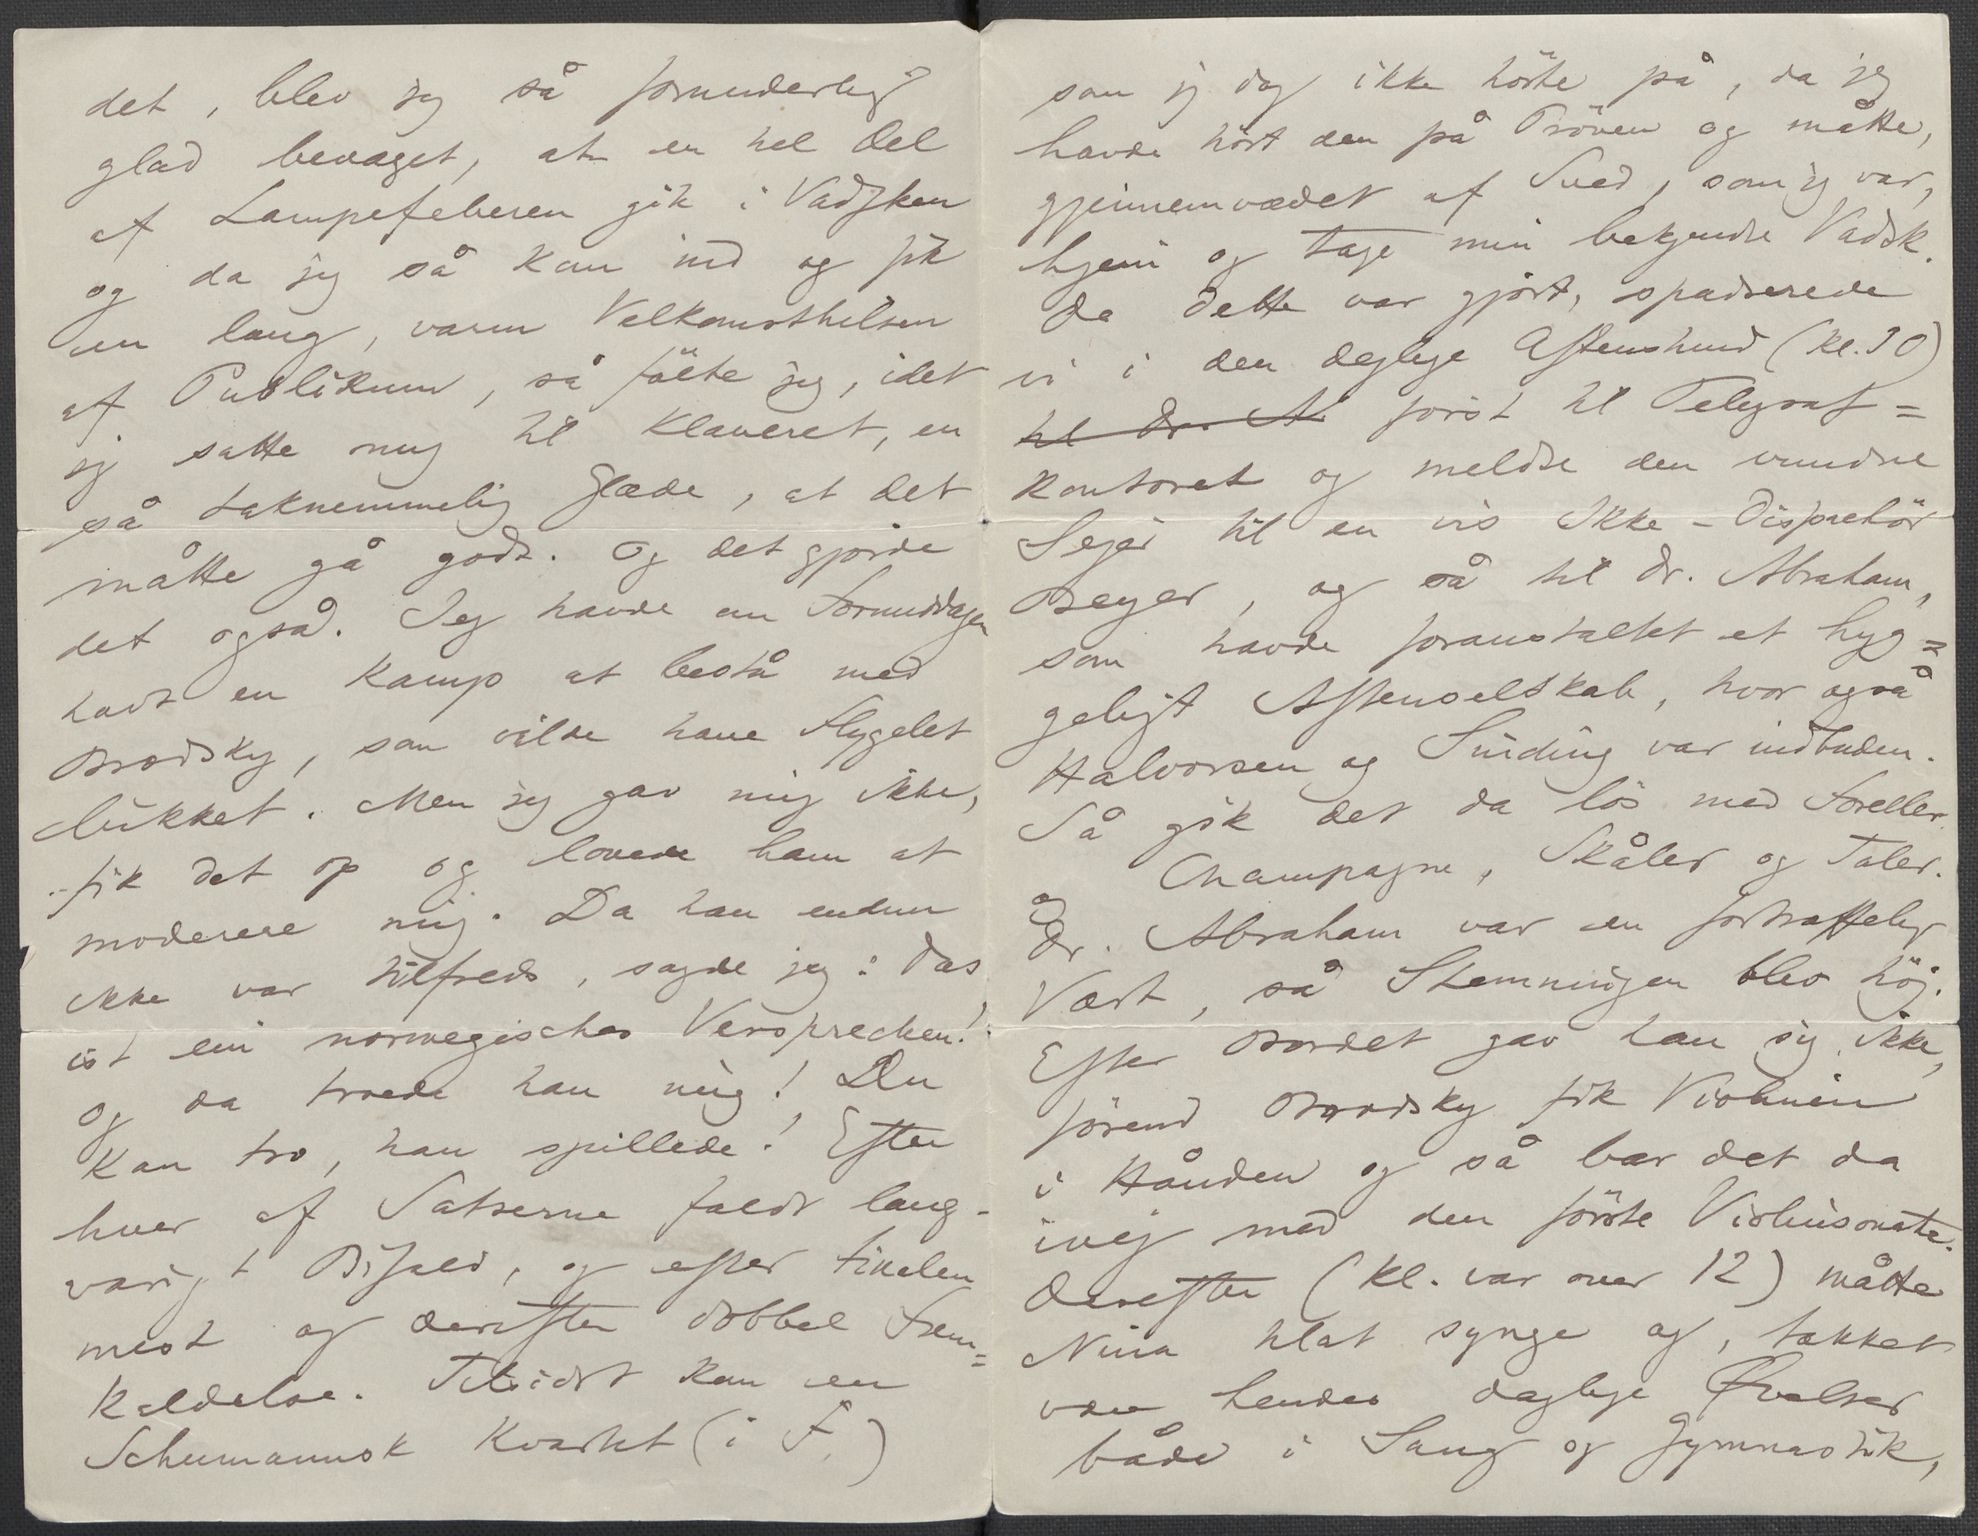 det, blev jeg så forunderlig
glad bevæget, at en hel Del
af Lampefeberen gik i Vadsken
og da jeg så kom ind og fik
en lang, varm Velkomsthilsen
af Publikum, så fölte jeg, idet
jeg satte mig til Klaveret, en
så taknemmelig Glæde, at det
måtte gå godt. Og det gjorde
det også. Jeg havde om Formiddagen
havt en Kamp at bestå med
Brodsky, som vilde have Flygelet
lukket. Men jeg gav mig ikke,
fik det op og lovede ham at
moderere mig. Da han endnu
ikke var tilfreds, sagde jeg: Das
ist ein norwegisches Versprechen!
og da troede han mig! Du
kan tro, han spillede! Efter
hver af Satserne faldt lang-
varigt Bifald, og efter Finalen
mest og derefter dobbel Frem=
kaldelse. Tilsidst kom en
Schumannsk Kvartet (i F.)
som jeg dog ikke hörte på, da jeg
havde hört den på Pröven og måtte,
gjennemvædet af Sved, som jeg var,
hjem og tage min bekjendte Vadsk.
Da dette var gjort, spadserede
vi i den dejlige Aftenstund (kl. 10)
til Dr. A först til Telegraf=
kontoret og meldte den vundne
Sejer til en vis Ikke-Dispachör
Beyer, og så til Dr. Abraham,
som havde foranstaltet et hyg=
geligt Aftenselskab, hvor også
Halvorsen og Sinding var indbuden.
Så gik det da lös med Foreller
og Champagne, Skåler og Taler.
Dr. Abraham var en fortræffelig
Vært, så Stemningen blev höj.
Efter Bordet gav han sig ikke,
förend Brodsky fik Violinen
i Hånden og så bar det da
ivej med den förste Violinsonate.
Derefter (kl. var over 12) måtte
Nina plat synge og, takket
være hendes daglige Øvelser
både i Sang og Gymnastik,